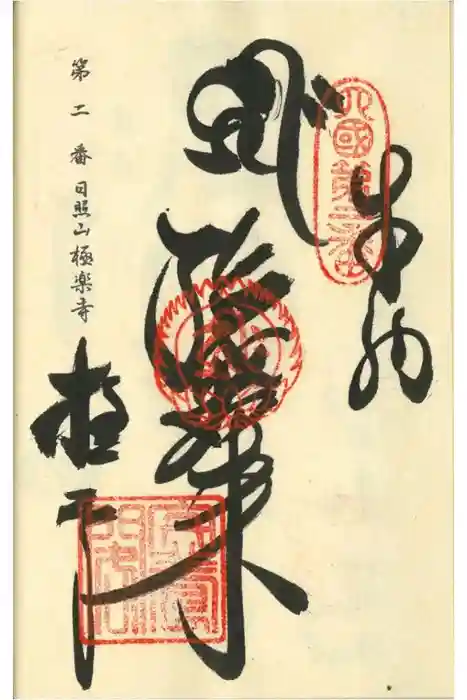 奉納
四國第二番
阿弥陀如来
極楽寺
第二番日照山極楽寺